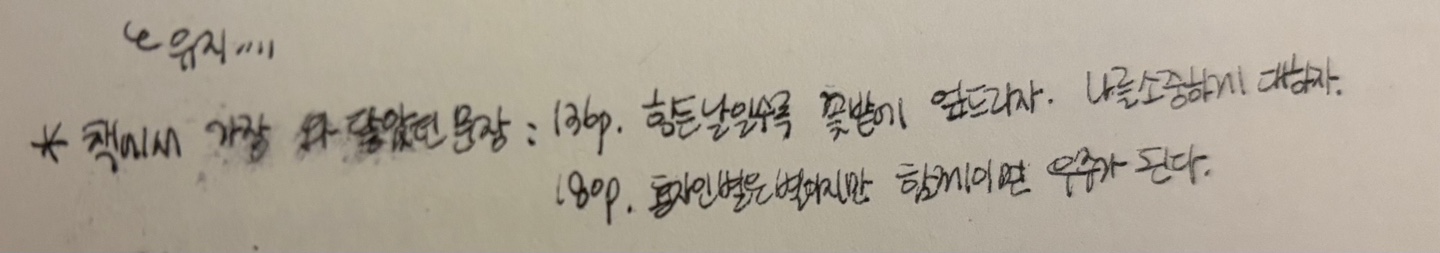 유지....
* 책에서 가장 와 닿았던 문장 : 136p. 힘든날일수록 꽃밭에 엎드리자. 나를소중하게 대하자.
180p. 혼자인별은 별이지만 함께이면 우주가 된다.